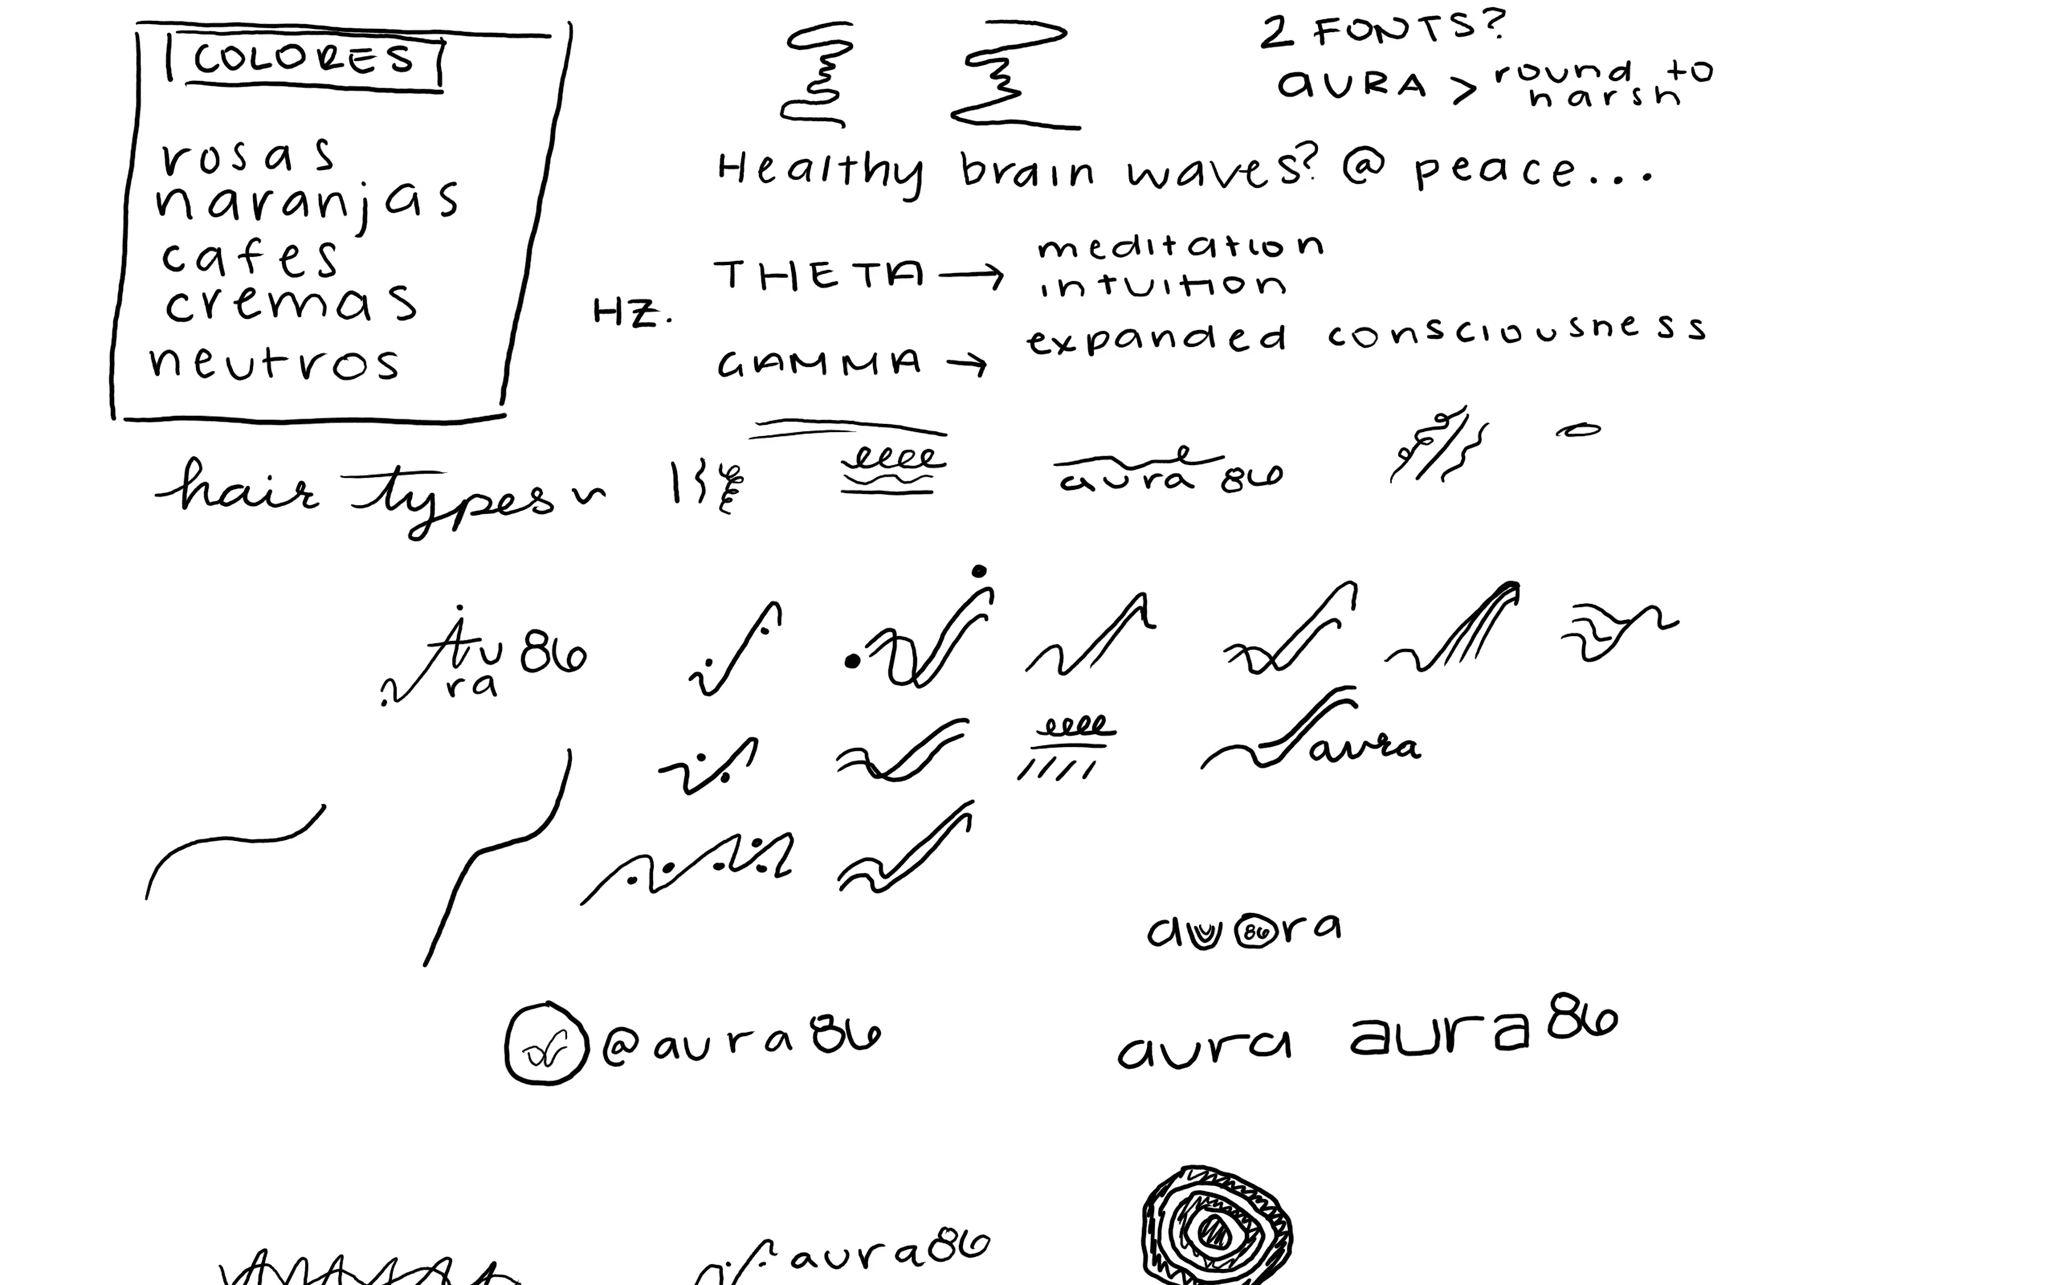 COLORES
rosas
naranjas
cafes
cremas
neutros
2 FONTS?
aURA > round to
harsh
Healthy brain waves? @ peace...
HZ.
THETA → meditation
intuition
GAMMA → expanded consciousness
hair types
aura 86
Au 86
ra
aura
au 86 ra
@aura86
aura aura86
aura86